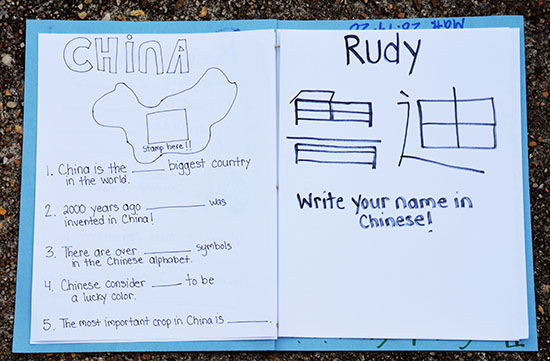 CHINA
Stamp here!!
1. China is the _____ biggest country
in the world.
2. 2000 years ago _________ was
invented in China!
3. There are over _______ symbols
in the Chinese alphabet.
4. Chinese consider _____ to be
a lucky color.
5. The most important crop in China is ______.
Rudy
Write your name in
Chinese!